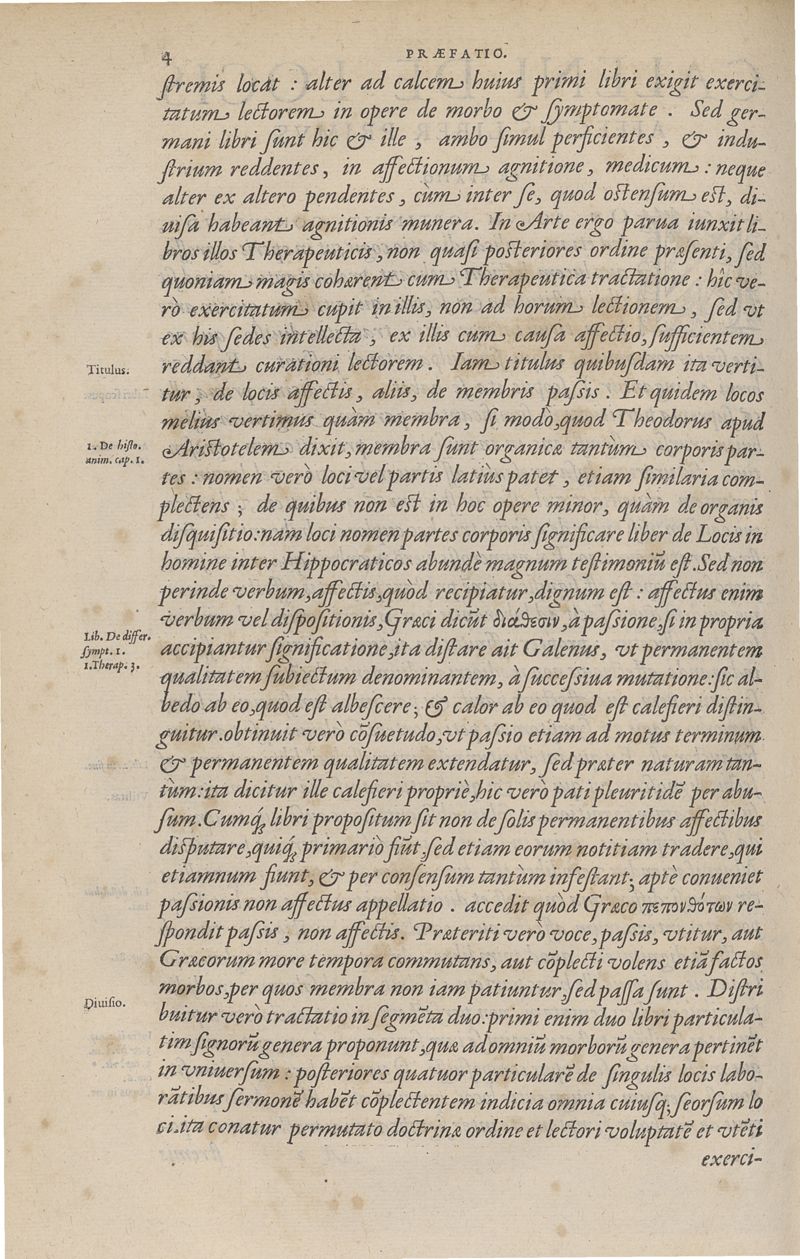 4
PRÆFATIO.
ſtremis locat : alter ad calcem huius primi libri exigit exerci-
tatum lectorem in opere de morbo & ſymptomate . Sed ger-
mani libri ſunt hic & ille , ambo ſimul perficientes , & indu-
ſtrium reddentes, in affectionum agnitione, medicum : neque
alter ex altero pendentes , cùm inter ſe, quod oſtenſum eſt, di-
uiſa habeant agnitionis munera. In Arte ergo parua iunxit li-
bros illos Therapeuticis, non quaſi poſteriores ordine præſenti, ſed
quoniam magis cohærent cum Therapeutica tractatione : hîc ve-
rò exercitatum cupit in illis, non ad horum lectionem , ſed vt
ex his ſedes intellecta , ex illis cum cauſa affectio, ſufficientem
Titulus.
reddant curationi lectorem . Iam titulus quibuſdam ita verti-
tur , de locis affectis, aliis, de membris paſsis . Et quidem locos
meliùs vertimus quàm membra , ſi modò,quod Theodorus apud
1. De hiſto.
anim. cap. 1.
Ariſtotelem dixit, membra ſunt organicæ tantùm corporis par-
tes : nomen verò loci vel partis latiùs patet , etiam ſimilaria com-
plectens ; de quibus non eſt in hoc opere minor, quàm de organis
diſquiſitio:nam loci nomen partes corporis ſignificare liber de Locis in
homine inter Hippocraticos abundè magnum teſtimoniũ eſt.Sed non
perinde verbum,affectis,quòd recipiatur,dignum eſt : affectus enim
verbum vel diſpoſitionis,Græci dicũt διάθεσιν,à paſsione,ſi in propria
Lib. De differ.
ſympt. 1.
1.Therap. 3.
accipiantur ſignificatione,ita diſtare ait Galenus, vt permanentem
qualitatem ſubiectum denominantem, à ſucceſsiua mutatione:ſic al-
bedo ab eo,quod eſt albeſcere; & calor ab eo quod eſt calefieri diſtin-
guitur.obtinuit verò cõſuetudo,vt paſsio etiam ad motus terminum
& permanentem qualitatem extendatur, ſed præter naturam tan-
tùm:ita dicitur ille calefieri propriè,hic verò pati pleuritidẽ per abu-
ſum.Cumq́; libri propoſitum ſit non de ſolis permanentibus affectibus
diſputare,quiq́; primariò fiũt,ſed etiam eorum notitiam tradere,qui
etiamnum fiunt, & per conſenſum tantùm infeſtant; aptè conueniet
paſsionis non affectus appellatio . accedit quòd Græco πεπονθότων re-
ſpondit paſsis , non affectis. Præteriti verò voce, paſsis, vtitur, aut
Græcorum more tempora commutans, aut cõplecti volens etiã factos
morbos,per quos membra non iam patiuntur,ſed paſſa ſunt . Diſtri
Diuiſio.
buitur verò tractatio in ſegmẽta duo:primi enim duo libri particula-
tim ſignorũ genera proponunt,quæ ad omniũ morborũ genera pertinẽt
in vniuerſum : poſteriores quatuor particularẽ de ſingulis locis labo-
rãtibus ſermonẽ habẽt cõplectentem indicia omnia cuiuſq; ſeorſum lo
ci.ita conatur permutato doctrinæ ordine et lectori voluptatẽ et vtẽti
exerci-